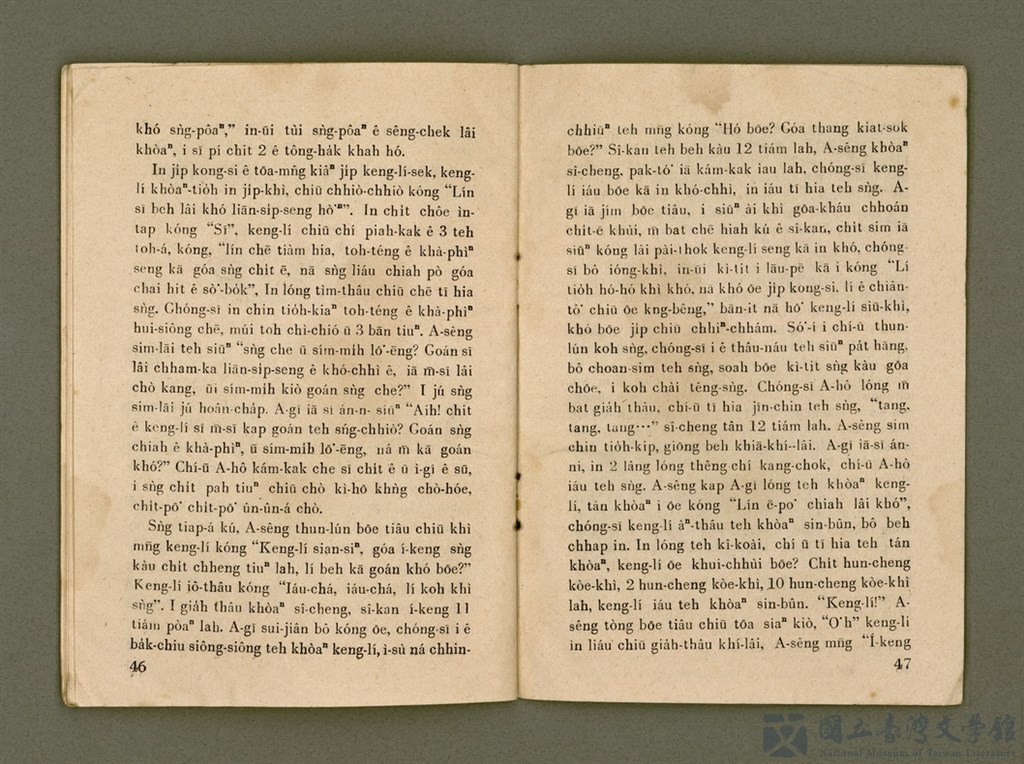 khó sǹg-pôaⁿ,” in-ūi tùi sǹg-pôaⁿ ê sêng-chek lâi
khòaⁿ, i sī pí chit 2 ê tông-ha̍k khah hó.
In ji̍p kong-si ê tōa-mn̂g kiâⁿ ji̍p keng-lí-sek, keng-
lí khòaⁿ-tio̍h in ji̍p-khì, chiū chhiò-chhiò kóng “Lín
sī beh lâi khó liān-si̍p-seng hò͘ⁿ”. In chi̍t chôe ìn-
tap kóng “Sī”, keng-lí chiū chí piah-kak ê 3 teh
toh-á, kóng, “lín chē tiàm hia, toh-téng ê khà-phìⁿ
seng kā góa sǹg chi̍t ē, nā sǹg liáu chiah pò góa
chai hit ê sò͘-bo̍k”, In lóng tìm-thâu chiū chē tī hia
sǹg. Chóng-sī in chin tio̍h-kiaⁿ toh-téng ê khà-phìⁿ
hui-siông chē, múi toh chì-chió ū 3 bān tiuⁿ. A-sêng
sim-lāi teh siūⁿ “sǹg che ū sím-mi̍h lō͘-ēng? Goán sī
lâi chham-ka liān-si̍p-seng ê khó-chhì ê, iā m̄-sī lâi
chò kang, ūi sím-mi̍h kiò goán sǹg che?” I jú sǹg
sim-lāi jú hoân-cha̍p. A-gī iā sī án-n- siūⁿ “Aih! chit
ê keng-lí sī m̄-sī kap goán teh sńg-chhiò? Goán sǹg
chiah ê khà-phìⁿ, ū sím-mi̍h lō͘-ēng, ná m̄ kā goán
khó?” Chí-ū A-hô kám-kak che sī chi̍t ê ū ì-gī ê sū,
i sǹg chi̍t pah tiuⁿ chiū chò kì-hō khǹg chò-hóe,
chi̍t-pō͘ chi̍t-pō͘ ûn-ûn-á chò.
Sǹg tiap-á kú, A-sêng thun-lún bōe tiâu chiū khì
mn̄g keng-lí kóng “Keng-lí sian-siⁿ, góa í-keng sǹg
kàu chi̍t chheng tiuⁿ lah, lí beh kā goán khó bōe?”
Keng-lí iô-thâu kóng “Iáu-chá, iáu-chá, lí koh khì
sǹg”. I gia̍h thâu khòaⁿ sî-cheng, sî-kan í-keng 11
tiám pòaⁿ lah. A-gī sui-jiân bô kóng ōe, chóng-sī i ê
ba̍k-chiu siông-siông teh khòaⁿ keng-lí, ì-sù ná chhin-
46
chhiūⁿ teh mn̄g kóng “Hó bōe? Góa thang kiat-sok
bōe?” Sî-kan teh beh kàu 12 tiám lah, A-sêng khòaⁿ
sî-cheng, pak-tó͘ iā kám-kak iau lah, chóng-sī keng-
lí iáu bōe kā in khó-chhì, in iáu tī hia teh sǹg. A-
gī iā jím bōe tiâu, i siūⁿ ài khì gōa-kháu chhoán
chi̍t-ē khùi, m̄ bat chē hiah kú ê sî-kan, chi̍t sim iā
siūⁿ kóng lâi pài-thok keng-lí seng kā in khó, chóng-
sī bô ióng-khì, in-ūi kì-tit i lāu-pē kā i kóng “Lí
tio̍h hó-hó khì khó, nā khó ōe ji̍p kong-si, lí ê chiân-
tô͘ chiū ōe kng-bêng,” bān-it nā hō͘ keng-lí siū-khì,
khó bōe ji̍p chiū chhiⁿ-chhám. Só͘-í i chí-ū thun-
lún koh sǹg, chóng-sī i ê thâu-náu teh siūⁿ pa̍t hāng,
bô choan-sim teh sǹg, soah bōe kì-tit sǹg kàu gōa
chōe, i koh chài têng-sǹg. Chóng-sī A-hô lóng m̄
bat gia̍h thâu, chí-ū tī hia jīn-chin teh sǹg, “tang,
tang, tang…” sî-cheng tân 12 tiám lah. A-sêng sim
chin tio̍h-kip, giōng beh khiā-khí--lâi. A-gī iā-sī án-
ni, in 2 lâng lóng thêng-chí kang-chok, chí-ū A-hô
iáu teh sǹg. A-sêng kap A-gī lóng teh khòaⁿ keng-
lí, tán khòaⁿ i ōe kóng “Lín ē-po͘ chiah lâi khó”,
chóng-sī keng-lí àⁿ-thâu teh khòaⁿ sin-bûn, bô beh
chhap in. In lóng teh kî-koài, chí ū tī hia teh tán
khòaⁿ, keng-lí ōe khui-chhùi bōe? Chi̍t hun-cheng
kòe-khì, 2 hun-cheng kòe-khì, 10 hun-cheng kòe-khì
lah, keng-lí iáu teh khòaⁿ sin-bûn. “Keng-lí!” A-
sêng tòng bōe tiâu chiū tōa siaⁿ kiò, “O͘h” keng-lí
ìn liáu chiū gia̍h-thâu khí-lâi, A-sêng mn̄g “Í-keng
47
國立臺灣文學館
National Museum of Taiwan Literature